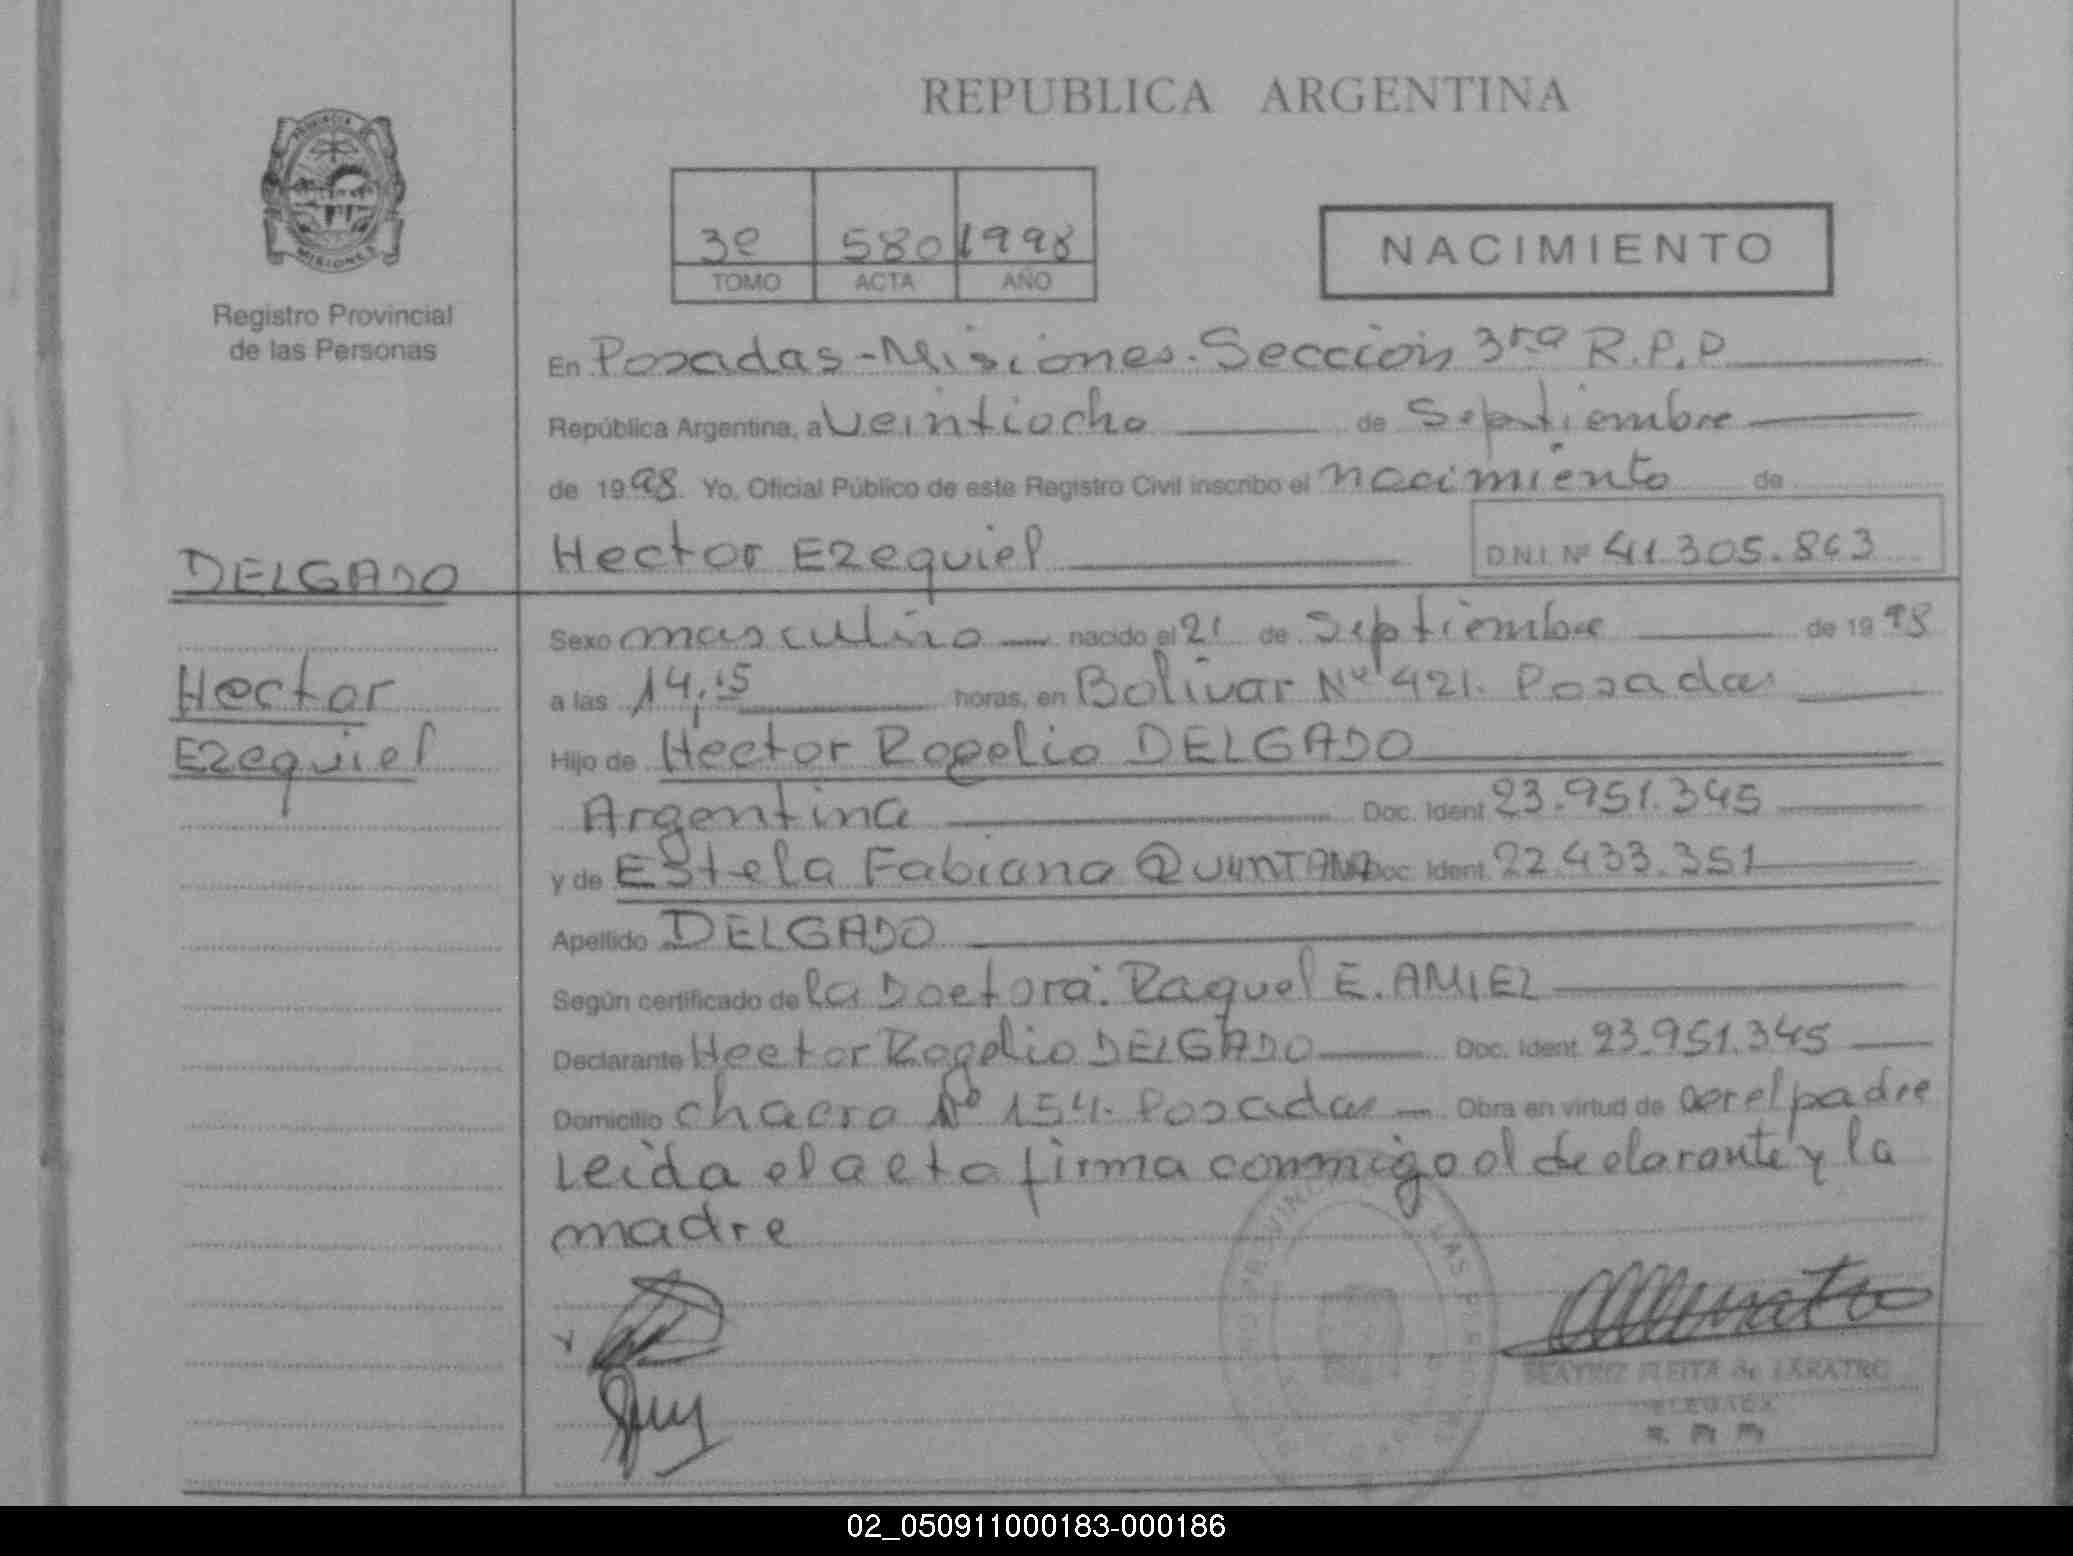 REPUBLICA ARGENTINA
PROVINCIA DE
MISIONES
Registro Provincial
de las Personas
3º 580 1998
TOMO ACTA AÑO
NACIMIENTO
En Posadas-Misiones. Seccion 3ra R.P.P
República Argentina, a veintiocho de Septiembre
de 1998. Yo, Oficial Público de este Registro Civil inscribo el nacimiento de
Hector Ezequiel D.N.I. Nº 41.305.863
DELGADO
Sexo masculino nacido el 21 de Septiembre de 1998
Hector
a las 14,15 horas, en Bolivar Nº 421. Posadas
Ezequiel
Hijo de Hector Rogelio DELGADO
Argentina Doc. Ident. 23.951.345
y de Estela Fabiana QUINTANA Doc. Ident. 22.433.351
Apellido DELGADO
Según certificado de la Doctora: Raquel E. AMIEZ
Declarante Hector Rogelio DELGADO Doc. Ident. 23.951.345
Domicilio chacra Nº 154. Posadas Obra en virtud de ser el padre
Leida el acta firma conmigo el declarante y la
madre
BEATRIZ FLEITA de LARATRO
DELEGADA
02_050911000183-000186